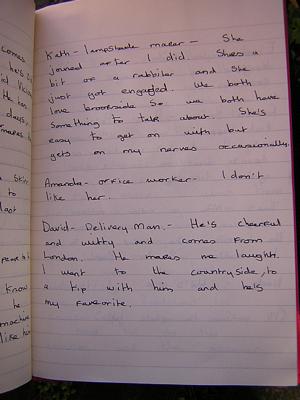 comes
he's
Kath - lampshade maker - She
joined after I did. She's a
bit of a rabbiter and she
just got engaged. We both
love brookside so we both have
something to talk about. She's
easy to get on with but
gets on my nerves occasionally.
Amanda - office worker - I don't
like her.
David - Delivery Man. - He's cheerful
and witty and comes from
London. He makes me laugh.
I went to the countryside, to
a tip with him and he's
my favourite.
He has
days,
makes
to
last
Know
he
machine
like